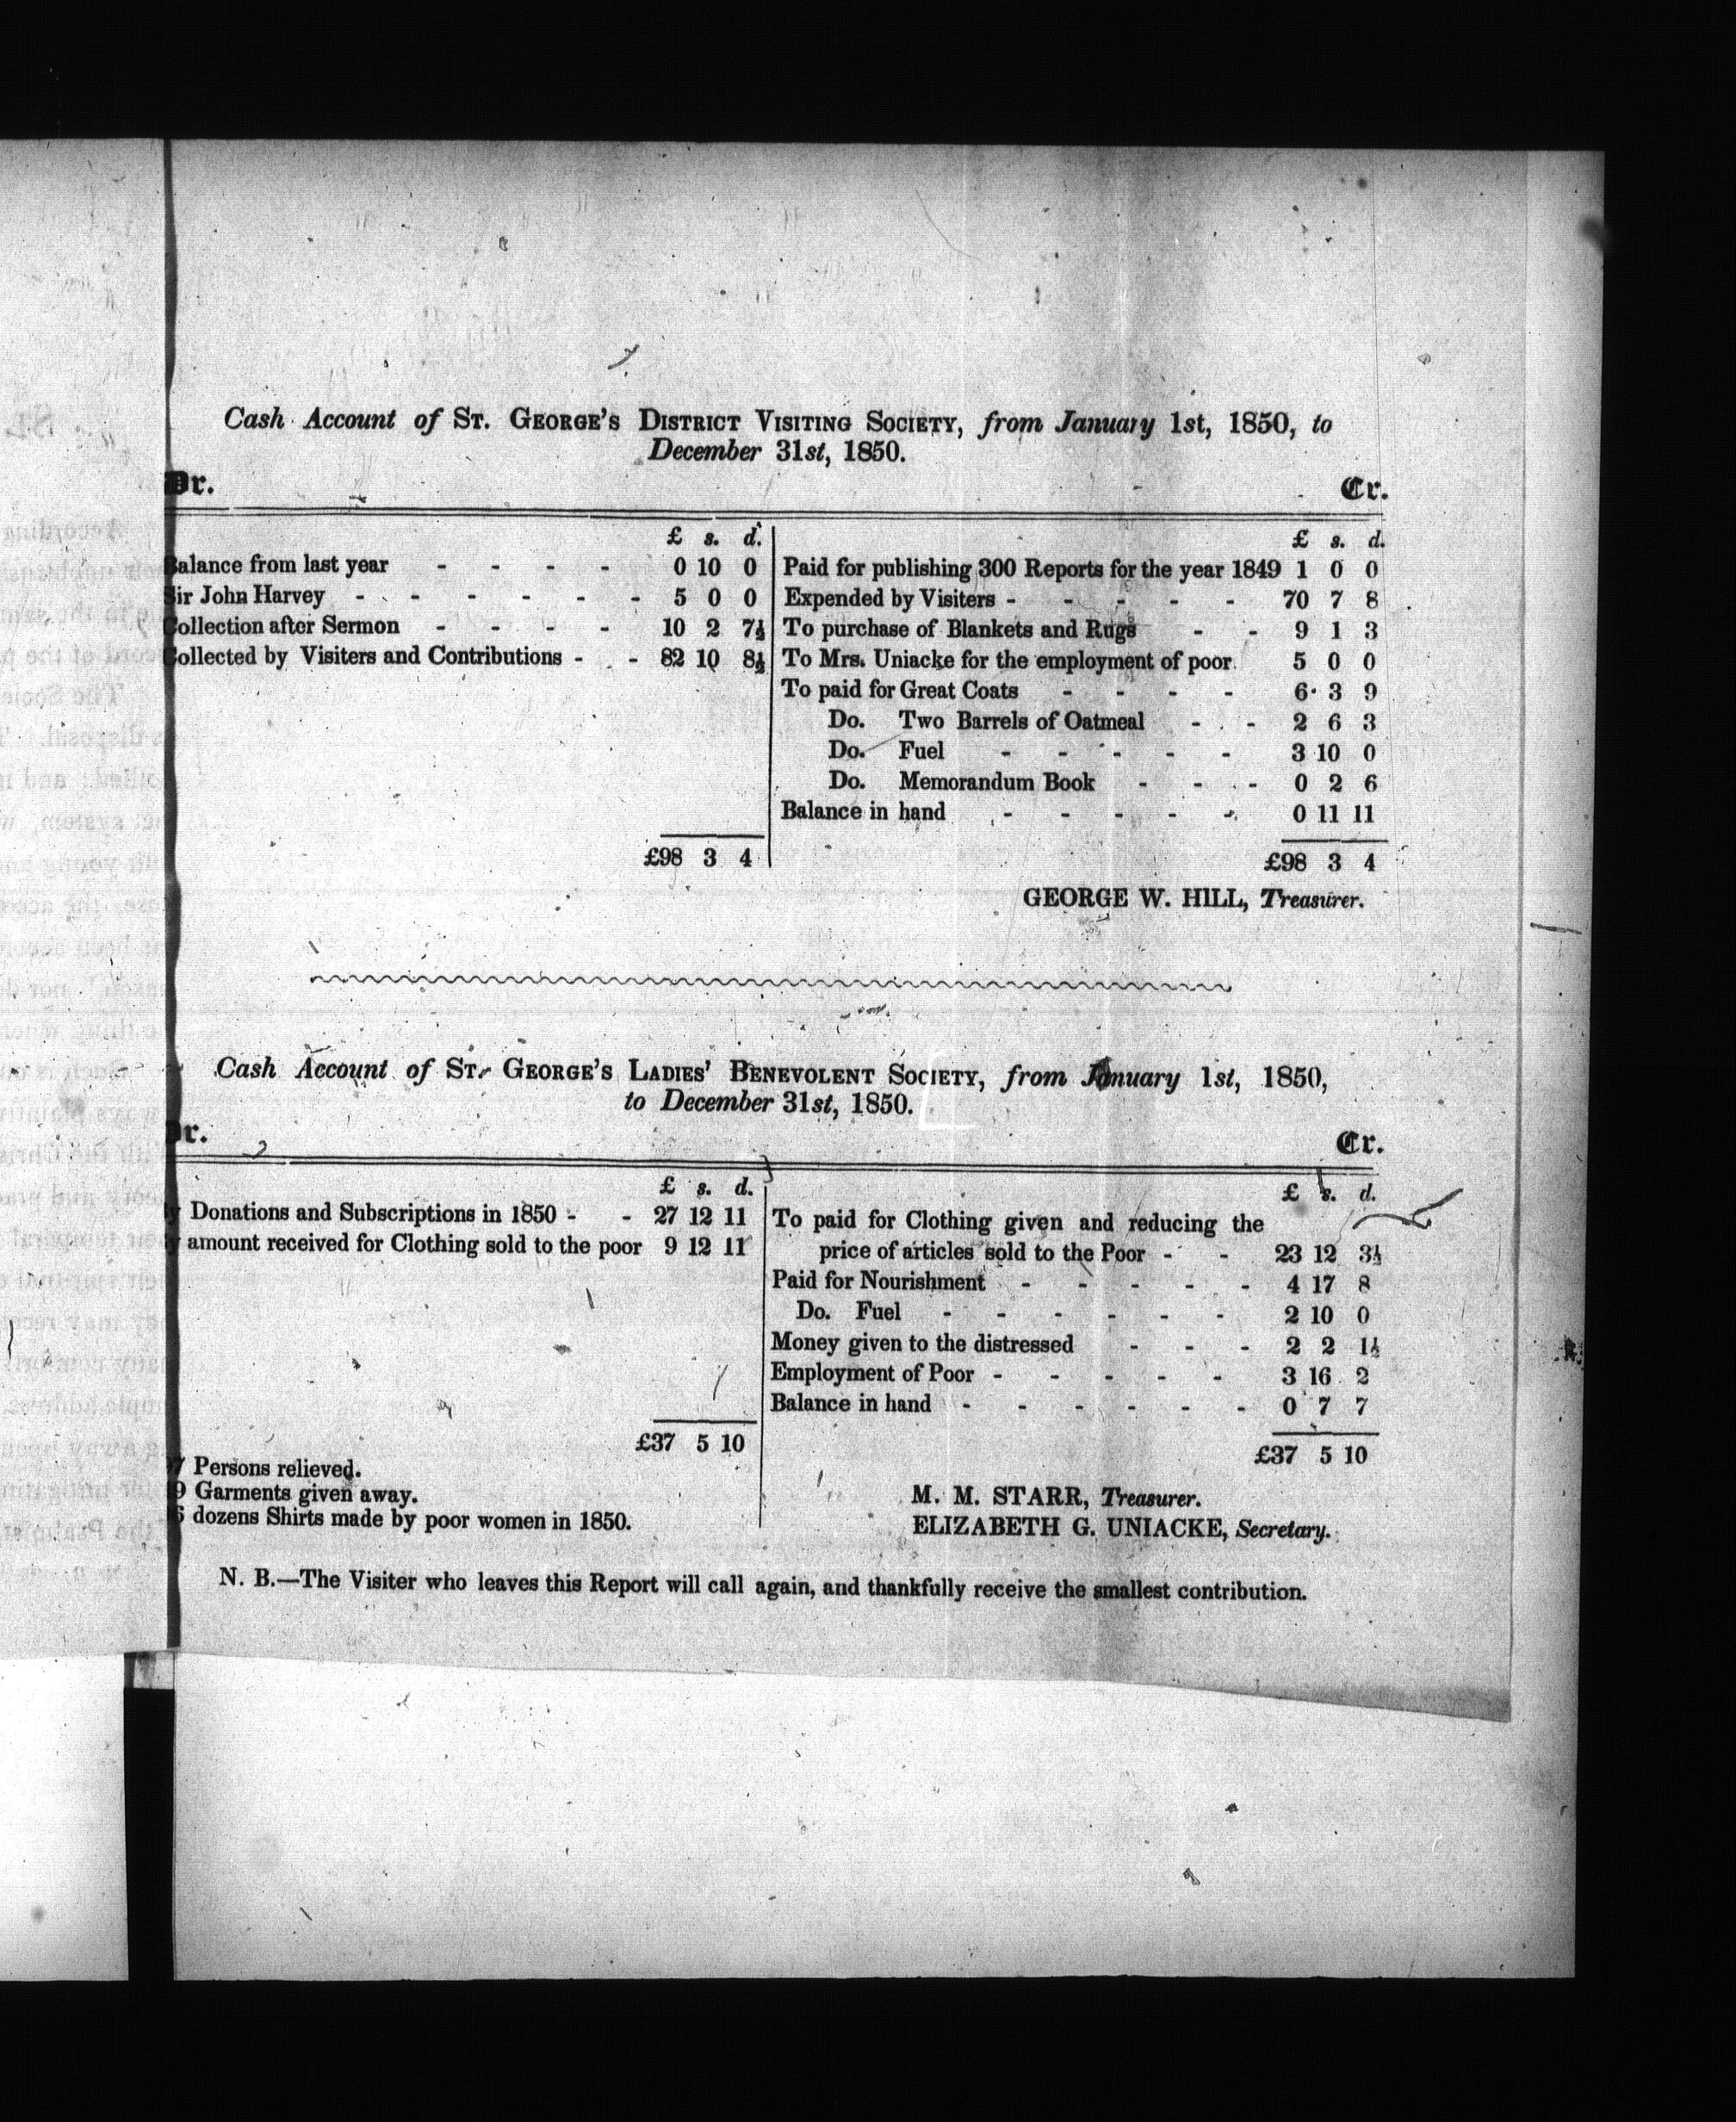 Cash Account of St. George's District Visiting Society, from January 1st, 1850, to
December 31st, 1850.
Dr. Cr.
£ s. d. £ s. d.
Balance from last year - - - - 0 10 0 Paid for publishing 300 Reports for the year 1849 1 0 0
Sir John Harvey - - - - - - 5 0 0 Expended by Visiters - - - - - 70 7 8
Collection after Sermon - - - - 10 2 7½ To purchase of Blankets and Rugs - - 9 1 3
Collected by Visiters and Contributions - - 82 10 8½ To Mrs. Uniacke for the employment of poor 5 0 0
To paid for Great Coats - - - - 6 3 9
Do. Two Barrels of Oatmeal - - 2 6 3
Do. Fuel - - - - - 3 10 0
Do. Memorandum Book - - - 0 2 6
Balance in hand - - - - - 0 11 11
£98 3 4 £98 3 4
GEORGE W. HILL, Treasurer.
Cash Account of St. George's Ladies' Benevolent Society, from January 1st, 1850,
to December 31st, 1850.
Dr. Cr.
£ s. d. £ s. d.
Donations and Subscriptions in 1850 - - 27 12 11 To paid for Clothing given and reducing the
amount received for Clothing sold to the poor 9 12 11 price of articles sold to the Poor - - 23 12 3½
Paid for Nourishment - - - - - 4 17 8
Do. Fuel - - - - - - 2 10 0
Money given to the distressed - - - 2 2 1½
Employment of Poor - - - - - 3 16 2
Balance in hand - - - - - - 0 7 7
£37 5 10 £37 5 10
Persons relieved.
Garments given away.
dozens Shirts made by poor women in 1850.
M. M. STARR, Treasurer.
ELIZABETH G. UNIACKE, Secretary.
N. B.—The Visiter who leaves this Report will call again, and thankfully receive the smallest contribution.